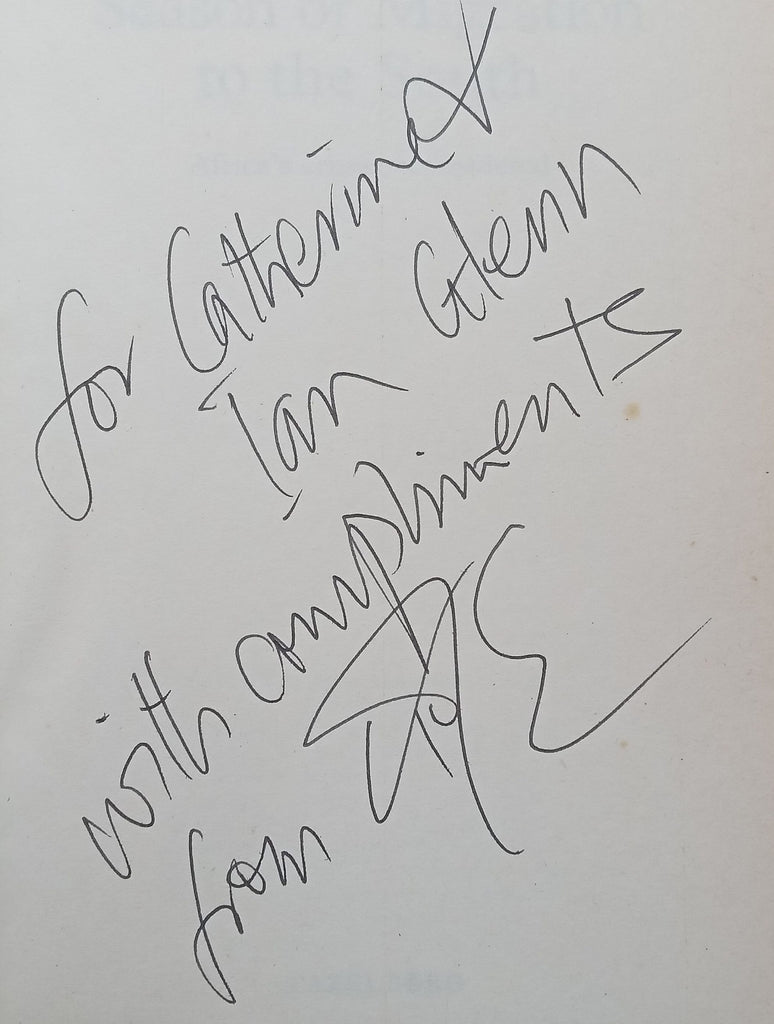 Season of Migration
to the South
for Catherine &
Ian Glenn
with compliments
from